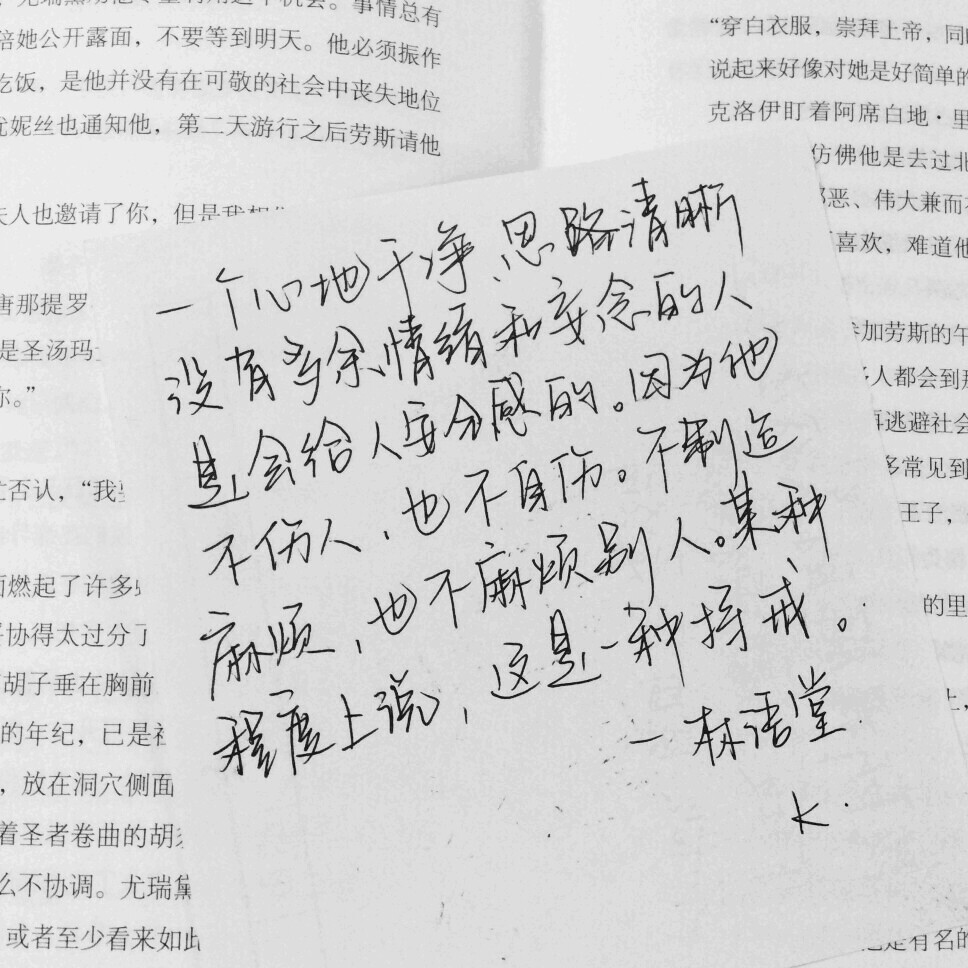 陪她公开露面，不要等到明天。他必须振作
吃饭，是他并没有在可敬的社会中丧失地位
尤妮丝也通知他，第二天游行之后劳斯请他
夫人也邀请了你，但是我
唐那提罗
是圣汤玛
你。”
忙否认，“我
燃起了许多
协得太过分了
胡子垂在胸前
的年纪，已是
，放在洞穴侧面
着圣者卷曲的胡
么不协调。尤瑞黛
或者至少看来如此
“穿白衣服，崇拜上帝，同
说起来好像对她是好简单的
克洛伊盯着阿席白地·里
仿佛他是去过北
恶、伟大兼而
喜欢，难道他
参加劳斯的午
人都会到那
再逃避社会
多常见到
王子，
的里
上，
是有名的
一个心地干净、思路清晰
没有多余情绪和妄念的人
是会给人安全感的。因为他
不伤人，也不自伤。不制造
麻烦，也不麻烦别人。某种
程度上说，这是一种持戒。
— 林语堂
K.